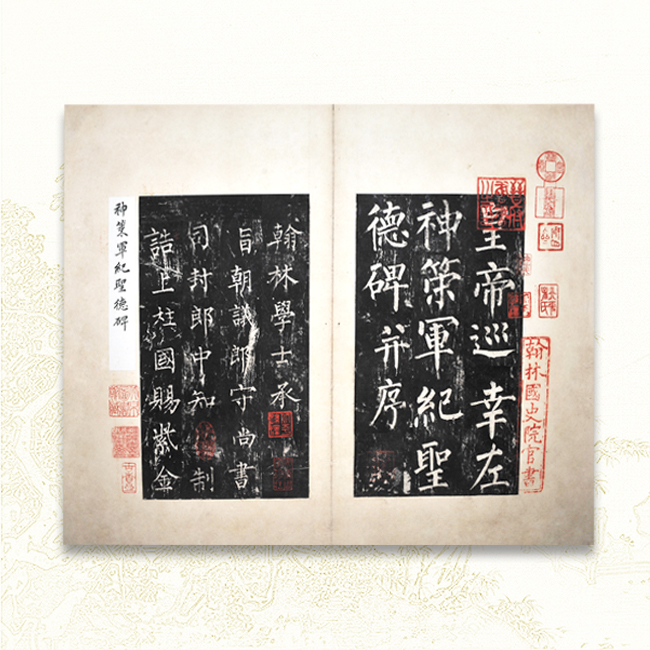 皇帝巡幸左
神策軍紀聖
德碑并序
翰林學士承
旨朝議郎守尚書
司封郎中知制
誥上柱國賜紫金
神策軍紀聖德碑
翰林國史院官書